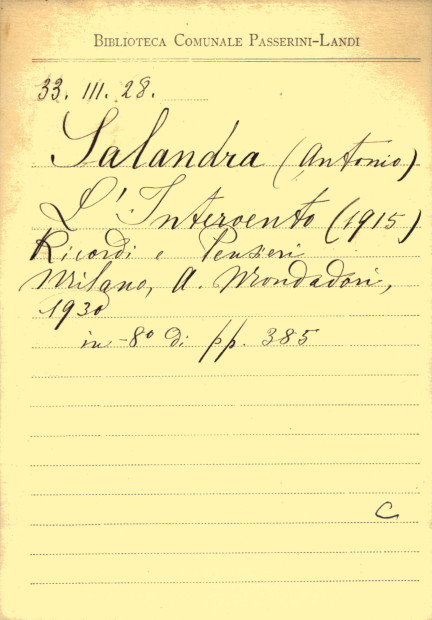 BIBLIOTECA COMUNALE PASSERINI-LANDI
33. III. 28.
Salandra (Antonio)
L'Intervento (1915)
Ricordi e Pensieri
Milano, A. Mondadori,
1930
in-8º di pp. 385
C